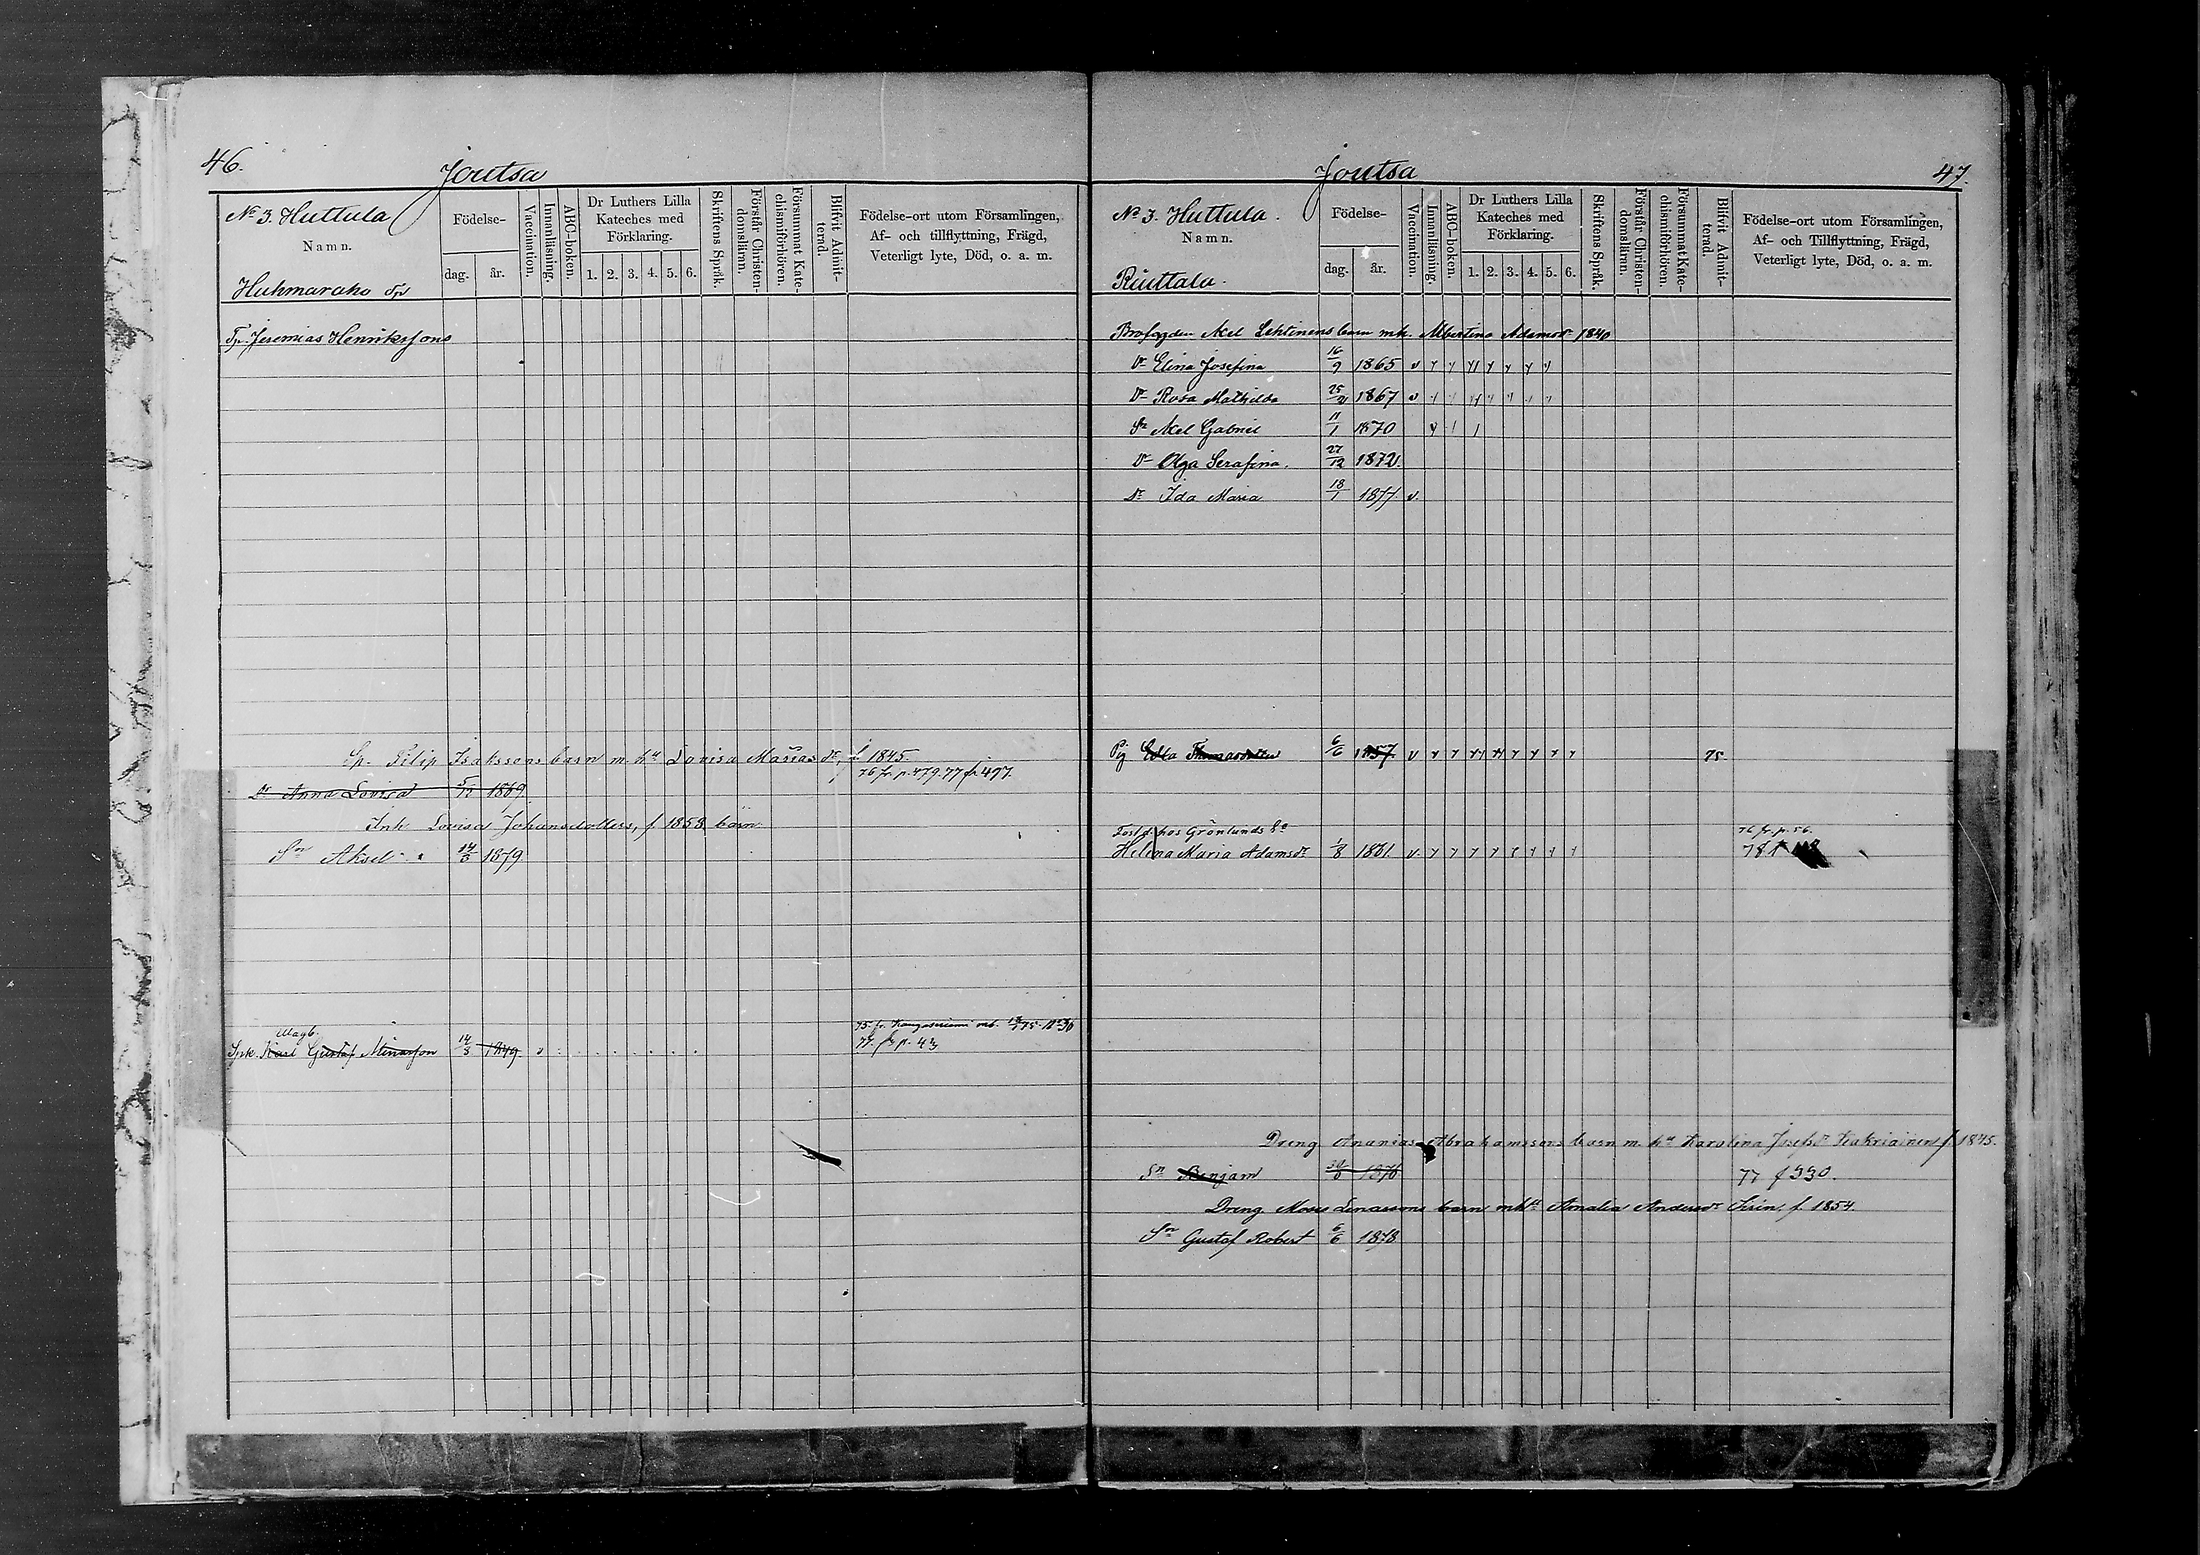 46.
Joutsa
No 3. Huttula
Namn.
Huhmarcho Tp
Födelse-
dag.
år.
Vaccination.
Innanläsning.
ABC-boken.
Dr Luthers Lilla
Kateches med
Förklaring.
1. 2. 3. 4. 5. 6.
Skriftens Språk.
Förstår Christen-
domsläran.
Försummat Kate-
chismiförhören.
Blifvit Admit-
terad.
Födelse-ort utom Församlingen,
Af- och tillflyttning, Frägd,
Veterligt lyte, Död, o. a. m.
Tp. Jeremias Henriksson
Sp. Filip Isakssons barn m. hu Lovisa Mariasdr, f 1845.
76 fr. p. 479. 77 fr 497
Dr Anna Lovisa 5/12 1869
Inh Lovisa Johansdotters, f. 1853 barn.
Sn Aksel 14/8 1879
Magb.
75 fr. Kangasniemi
Inh. Karl Gustaf Minasson 14/8 1849 v
77. p. 43
Joutsa
47.
No 3. Huttula.
Namn.
Riuttala.
Födelse-
dag.
år.
Vaccination.
Innanläsning.
ABC-boken.
Dr Luthers Lilla
Kateches med
Förklaring.
1. 2. 3. 4. 5. 6.
Skriftens Språk.
Förstår Christen-
domsläran.
Försummat Kate-
chismiförhören.
Blifvit Admit-
terad.
Födelse-ort utom Församlingen,
Af- och Tillflyttning, Frägd,
Veterligt lyte, Död, o. a. m.
Brofogden Axel Lehtinens barn mh. Albertina Adamsdr 1840
Dr Elina Josefina 16/9 1865 v
Dr Rosa Mathilda 25/2 1867 v
Sn Axel Gabriel 11/1 1870
Dr Olga Serafina. 27/12 1872.
Dr Ida Maria 18/1 1877 v.
Pig Edla Thomasdotter 6/6 1857. v 75
Fostd. hos Grönlunds
76 fr. p. 56.
Helena Maria Adamsdr 1/8 1861. v.
78 f
Dreng Ananias Abrahamssons barn m. hu Karolina Josefsdr f 1845.
Sn Benjam 1876 77 f 330.
Dreng Moses Linassons barn mhu Amalia Andersdr f. 1854
Sn Gustaf Robert 6/6 1878